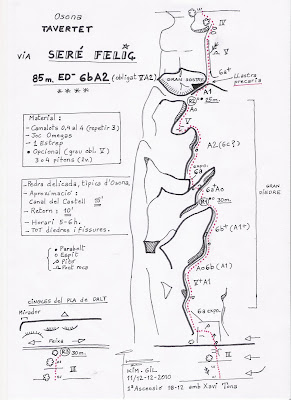 Osona
TAVERTET
VIA SERÉ FELIÇ
85m. ED- 6bA2 (obligat. V A2)
* * * *
Material:
- Camalots 0,4 al 4 (repetir 3)
- Joc Omegas
- 1 Estrep
• Opcional (grau obl. V)
3 o 4 pitons (2u.)
- Pedra delicada, típica d'Osona.
- Aproximació:
Canal del Castell 15'
- Retorn: 10'
- Horari 5-6h.
- TOT diedres i fissures.
Parabolt
Espit
Pitó
Pont roca
CINGLES DEL PLA DE DALT
Mirador
Feixa
R1 30m.
III
IV
V
6a+
Llastra precaria
GRAN SOSTRE
A1
R2 35m.
A0
V
A2 (6c?)
expo.
6a
6a A0
R1
30m.
GRAN DIEDRE
6b+ (A1+)
A0 6b (A1)
V+ A1
6a expo.
III
KIM. GIL
11/12-12-2010
1ª Ascensió 18-12 amb Xavi Tuns